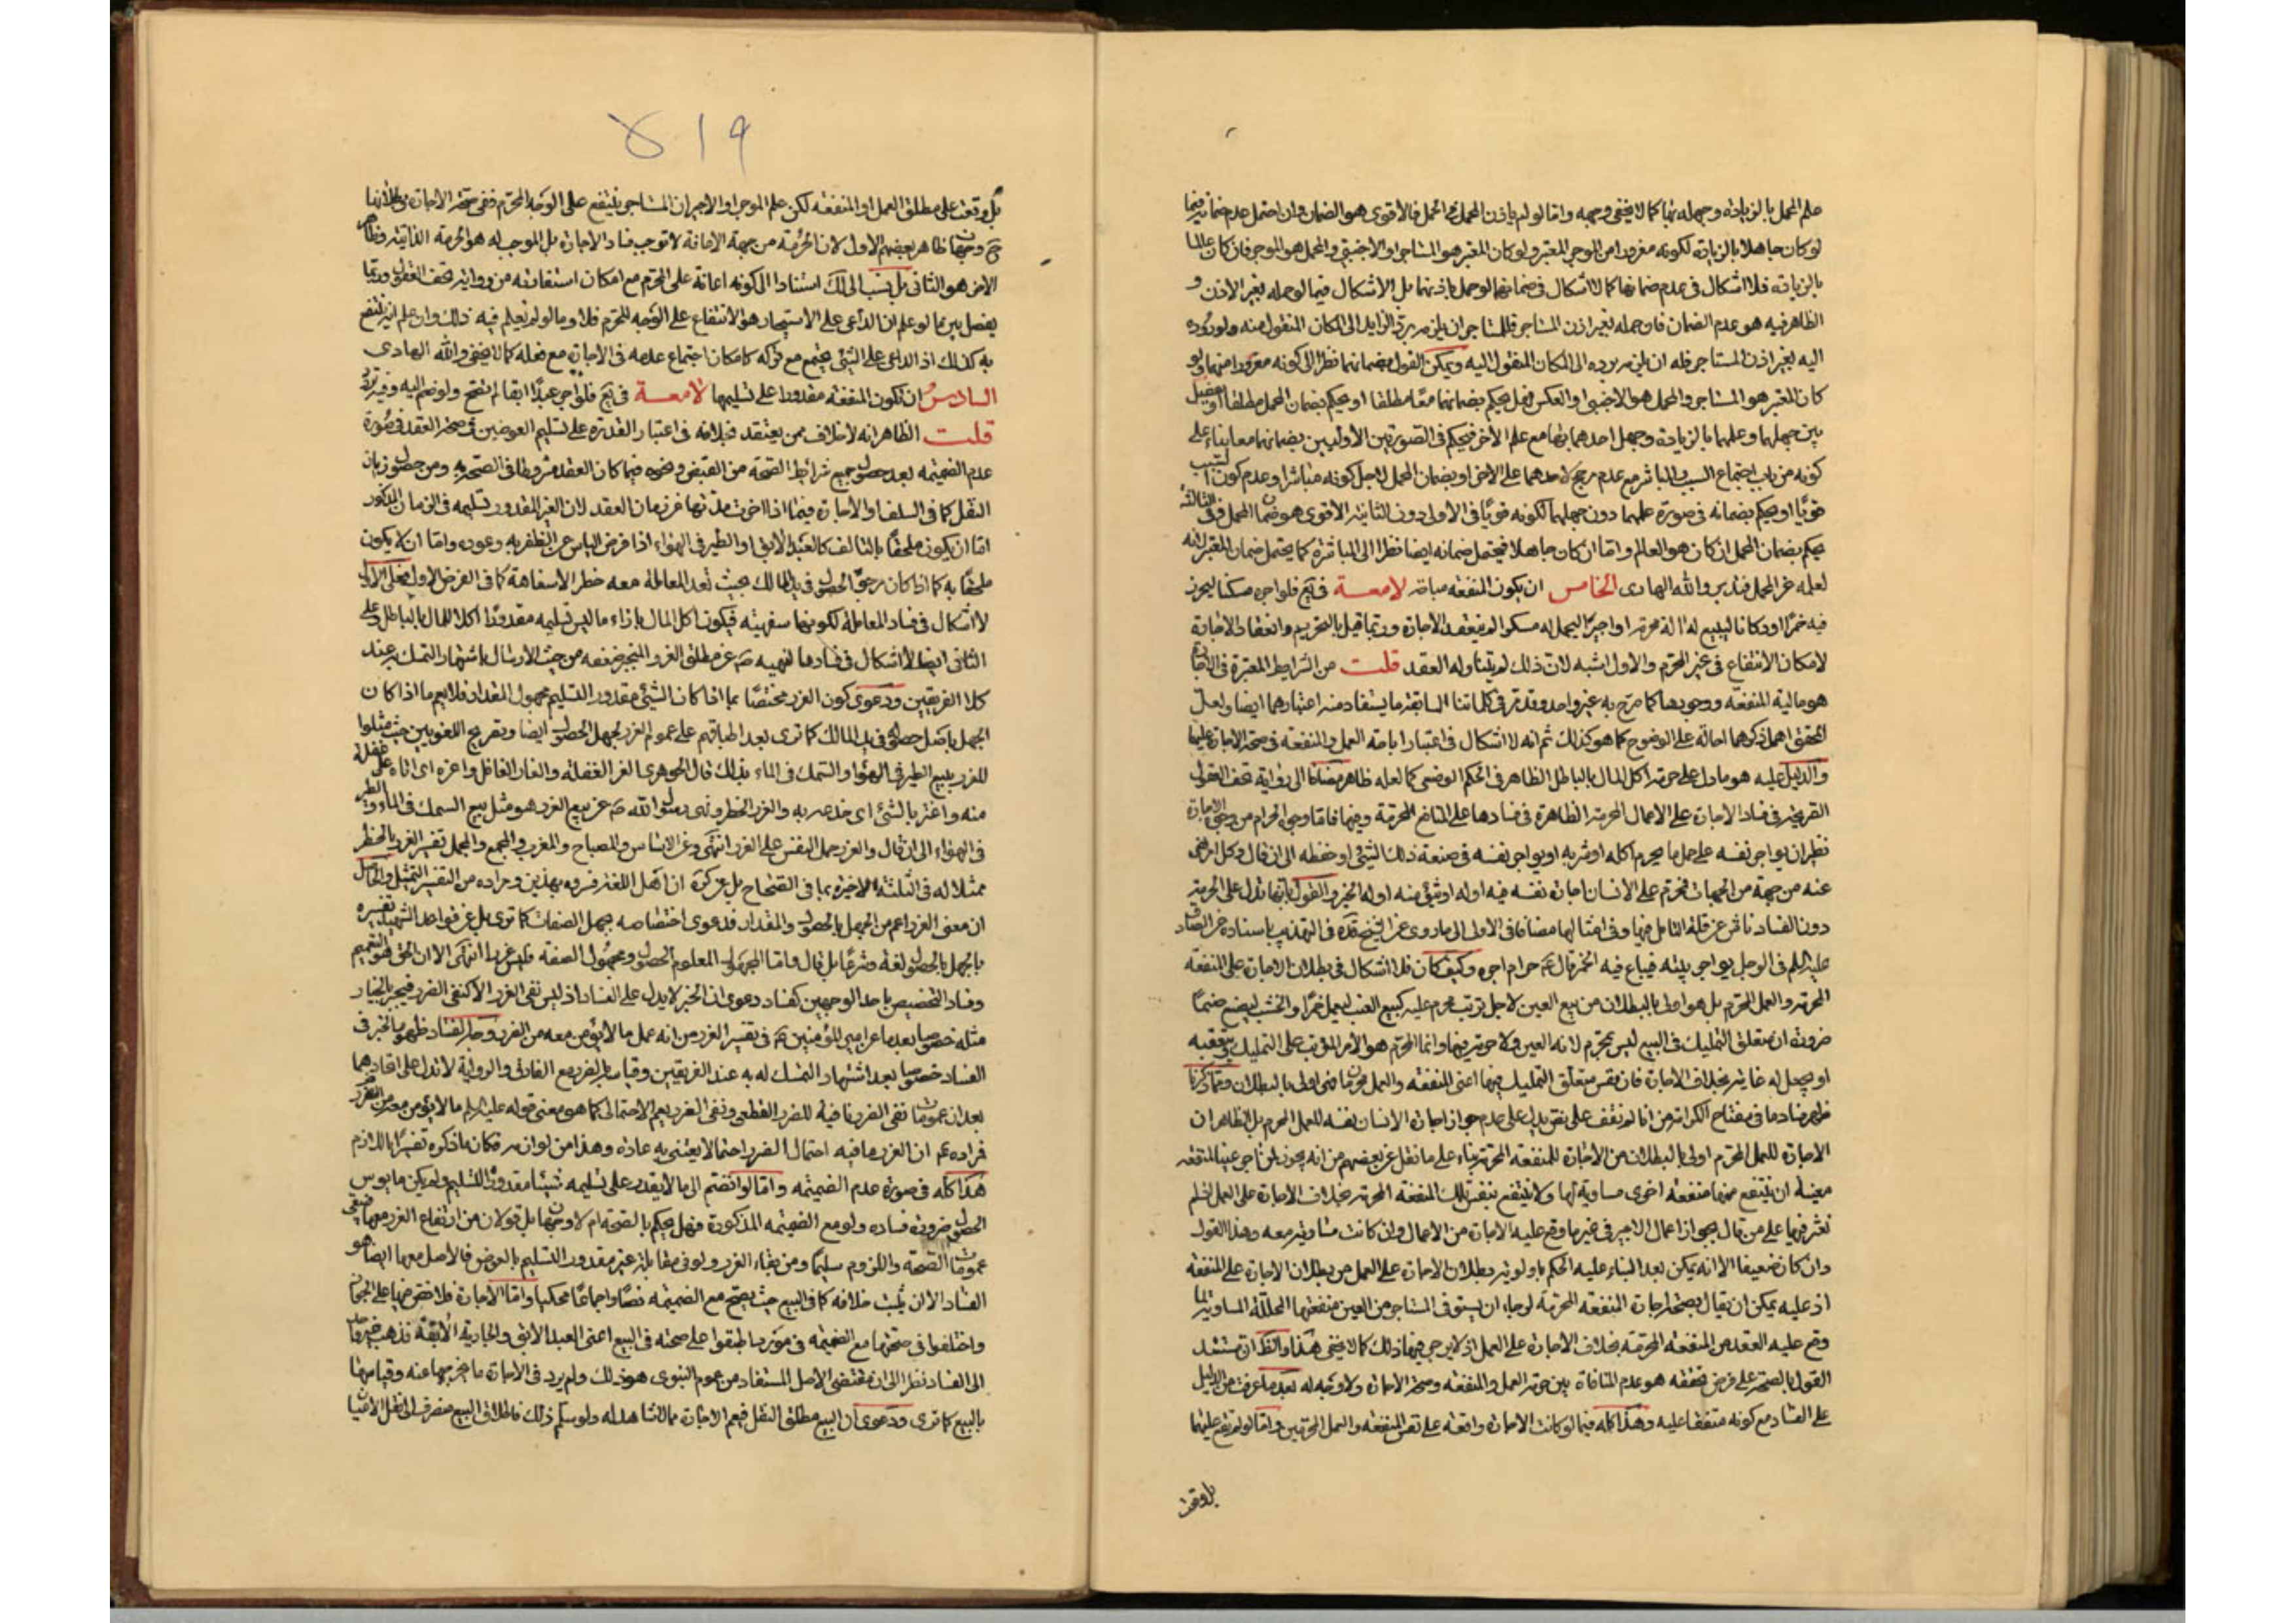 علم المحمل بالزيادة وجهله بها كما لا يخفى وجهه واما لو لم ياذن المحمل في الحمل فالاقوى هو الضمان وان احتمل عدم ضمانه فيما
لو كان جاهلا بالزيادة لكونه مغرورا من الموجر المعتبر ولو كان المعتبر هو المستاجر او الاجنبي والمحمل هو الموجر فان كان عالما
بالزيادة فلا اشكال في عدم ضمانها كما لا اشكال في ضمانهما لو حمل باذنهما بل الاشكال فيما لو حمله بغير الاذن و
الظاهر فيه هو عدم الضمان فلو حمله بغير اذن المستاجر فللمستاجر ان يلزمه برد الزايد الى المكان المنقول منه ولو رده
اليه بغير اذن المستاجر فله ان يلزمه برده الى المكان المنقول اليه ويمكن القول بضمانهما نظرا الى كونه مغرورا منهما ولو
كان المعتبر هو المستاجر والمحمل هو الاجنبي او العكس فهل يحكم بضمانهما معا مطلقا او يحكم بضمان المحمل مطلقا او تفصيل
بين جهلهما وعلمهما بالزيادة وجهل احدهما بها مع علم الاخر فيحكم في الصورتين الاوليين بضمانهما معا بناء على
كونه من باب اجتماع السبب والمباشر مع عدم مرجح لاحدهما على الاخر او بضمان المحمل لاجل كونه مباشرا وعدم كون السبب
قويا او يحكم بضمانه في صورة علمهما دون جهلهما لكونه قويا في الاولى دون الثانية الاقوى هو ضمان المحمل وفي الثالثة
يحكم بضمان المحمل ان كان هو العالم واما ان كان جاهلا فيحتمل ضمانه ايضا نظرا الى المباشرة كما يحتمل ضمان المعتبر لانه
لعلمه غر المحمل فتدبر والله الهادى الخامس ان يكون المنفعة مباحة لامعة في يع فلو اجره مسكنا ليحرز
فيه خمرا او دكانا ليبيع له الة محرمة او اجيرا ليحمل له مسكرا لم ينعقد الاجارة وربما قيل بالتحريم وانعقاد الاجارة
لامكان الانتفاع في غير المحرم والاول اشبه لان ذلك لم يتناوله العقد قلت من الشرايط المعتبرة في الاجارة
هو مالية المنفعة ووجودها كما صرح به غير واحد وقد مر في كلماتنا السابقة ما يستفاد منه اعتبارهما ايضا ولعل
المحقق اهمل ذكرهما احالة على الوضوح كما هو كذلك ثم انه لا اشكال في اعتبار اباحة العمل والمنفعة في صحة الاجارة عليهما
والدليل عليه هو ما دل على حرمة اكل المال بالباطل الظاهر في الحكم الوضعي كما لعله ظاهر مضافا الى رواية تحف العقول
الصريحة في فساد الاجارة على الاعمال المحرمة الظاهرة في فسادها على المنافع المحرمة وفيها فاما وجوه الحرام من وجوه الاجارة
نظير ان يواجر نفسه على حمل ما يحرم اكله او شربه او يواجر نفسه في صنعة ذلك الشئ او حفظه الى ان قال وكل امر نهى
عنه من جهة من الجهات فمحرم على الانسان اجارة نفسه فيه او له او شئ منه او له الخبر والقول بانها تدل على الحرمة
دون الفساد ناش عن قلة التامل فيها وفي امثالها مضافا في الاولى الى ما روى عن الشيخ قده في التهذيب باسناده عن الصادق
عليه السلم في الرجل يواجر بيته فيباع فيه الخمر قال ع حرام اجره وكيف كان فلا اشكال في بطلان الاجارة على المنفعة
المحرمة والعمل المحرم بل هو اولى بالبطلان من بيع العين لاجل ترتب محرم عليه كبيع العنب ليعمل خمرا والخشب ليصنع صنما
ضرورة ان متعلق التمليك في البيع ليس بمحرم لانه العين ولا حرمة فيها وانما المحرم هو الامر المترتب على التمليك بتعقبه
او يجعل له غاية بخلاف الاجارة فان نفس متعلق التمليك فيها اعنى المنفعة والعمل محرمان فهى اولى بالبطلان ومما ذكرنا
ظهر فساد ما في مفتاح الكرامة من انا لم نقف على نص يدل على عدم جواز اجارة الانسان نفسه للعمل المحرم بل الظاهر ان
الاجارة للعمل المحرم اولى بالبطلان من الاجارة للمنفعة المحرمة بناء على ما نقل عن بعضهم من انه يجوز لمن استاجر عينا لمنفعة
معينة ان ينتفع منها منفعة اخرى مساوية لها ولا ينتفع بنفس تلك المنفعة المحرمة بخلاف الاجارة على العمل فلم
نعثر فيها على من قال بجواز اعمال الاجير في غير ما وقع عليه الاجارة من الاعمال وان كانت متساوية معه وهذا القول
وان كان ضعيفا الا انه يمكن بعد البناء عليه الحكم باولوية بطلان الاجارة على العمل من بطلان الاجارة على المنفعة
اذ عليه يمكن ان يقال بصحة اجارة المنفعة المحرمة لرجاء ان يستوفى المستاجر من العين منفعتها المحللة المساوية لما
وقع عليه العقد من المنفعة المحرمة بخلاف الاجارة على العمل اذ لا يرجى فيها ذلك كما لا يخفى هذا والظ ان مستند
القول بالصحة على فرض تحققه هو عدم المنافاة بين حرمة العمل والمنفعة وصحة الاجارة ولا وجه له بعد ما عرفت من الدليل
على الفساد مع كونه متفقا عليه وهذا كله فيما لو كانت الاجارة واقعة على نفس المنفعة والعمل المحرمين واما لو لم تقع عليهما
بل وقعت
٩١٨
بل وقعت على مطلق العمل او المنفعة لكن علم الموجر او الاجير ان المستاجر ينتفع على الوجه المحرم ففى صحة الاجارة
وجهان ظاهر بعضهم الاول لان الحرمة من جهة الاعانة لا توجب فساد الاجارة بل الموجب له هو الحرمة الذاتية وظاهر
الاخر هو الثانى بل نسب الى لك استنادا الى كونه اعانة على المحرم مع امكان استفادته من رواية تحف العقول وربما
يفصل بين ما لو علم ان الداعى على الاستيجار هو الانتفاع على الوجه المحرم فلا وما لو لم يعلم فيه ذلك وان علم انه ينتفع
به كذلك اذ الداعى على الشئ يجتمع مع تركه كامكان اجتماع عدمه في الاجارة مع فعله كما لا يخفى والله الهادى
السادس ان تكون المنفعة مقدورا على تسليمها لامعة في يع فلو اجر عبدا ابقا لم تصح ولو ضم اليه وفيه تردد
قلت الظاهر انه لا خلاف ممن يعتقد بخلافه في اعتبار القدرة على تسليم العوضين في صحة العقد في صورة
عدم الضميمة بعد حصول جميع شرايط الصحة من القبض ونحوه فيما كان العقد مشروطا في الصحة به ومن حصول زمان
النقل كما في السلف او الاجارة فيما اذا اخرت مدتها عن زمان العقد لان الغير المقدور تسليمه في الزمان المذكور
اما ان يكون ملحقا بالتالف كالعبد الابق او الطير في الهواء اذا فرض الياس عن الظفر به وعوده واما ان لا يكون
ملحقا به كما اذا كان مرجو الحصول في يد المالك بحيث تعد المعاملة معه خطرا لا سفاهة كما في الفرض الاول فعلى الاول
لا اشكال في فساد المعاملة لكونها سفهية فيكون اكل المال بازاء ما ليس تسليمه مقدورا اكلا للمال بالباطل وعلى
الثانى ايضا لا اشكال في فسادها لنهيه ص عن مطلق الغرر المنجبر ضعفه من حيث الارسال باشتهار التمسك به عند
كلا الفريقين ودعوى كون الغرر مختصا بما اذا كان الشئ مقدور التسليم مجهول المقدار فلا يعم ما اذا كان
الجهل باصل حصوله في يد المالك كما ترى بعد اطباقهم على عموم الغرر لجهل الحصول ايضا وتصريح اللغويين حيث مثلوا
للغرر ببيع الطير في الهواء والسمك في الماء بذلك قال الجوهرى الغر الغفلة والغار الغافل واغره اى اتاه على غفلة
منه واغتر بالشئ اى خدع به والغرر الخطر ونهى رسول الله ص عن بيع الغرر هو مثل بيع السمك في الماء والطير
في الهواء الى ان قال والغرر حمل النفس على الغرر انتهى وعن الاساس والمصباح والمغرب والمجمع والمجمل تفسير الغرر بالخطر
ممثلا له في الثلثة الاخيرة بما في الصحاح بل عن كرة ان اهل اللغة فسروه بهذين ومراده من التفسير التمثيل والحاصل
ان معنى الغرر اعم من الجهل بالحصول والمقدار فدعوى اختصاصه بجهل الصفات كما ترى بل عن قواعد الشهيد تفسيره
بالجهل بالحصول لغة وشرعا بل قال واما المجهول المعلوم الحصول ومجهول الصفة فليس غررا انتهى الا ان الحق هو التعميم
وفساد التخصيص باحد الوجهين كفساد دعوى ان الخبر لا يدل على الفساد اذ ليس نفى الغرر الا كنفى الضرر فيجبر بالخيار
مثله خصوصا بعد ما عن امير المؤمنين ع في تفسير الغرر من انه عمل ما لا يؤمن معه من الضرر وجه الفساد ظهور الخبر في
الفساد خصوصا بعد اشتهار التمسك له به عند الفريقين وقياسه بالضرر مع الفارق والرواية لا تدل على اتحادهما
بعد ان عمومات نفى الضرر نافية للضرر القطعى ونفى الغرر يعم الاحتمالى كما هو معنى قوله عليه السلم ما لا يؤمن معه من الضرر
فمراده ع ان الغرر ما فيه احتمال الضرر احتمالا يعتنى به عادة وهذا من لوازمه فكان ما ذكره تفسيرا باللازم
هذا كله في صورة عدم الضميمة واما لو انضم الى ما لا يقدر على تسليمه شيئا مقدور التسليم ولم يكن مايوس
الحصول ضرورة فساده ولو مع الضميمة المذكورة فهل يحكم بالصحة ام لا وجهان بل قولان من ارتفاع الغرر معها فيبقى
عمومات الصحة واللزوم سليما ومن بقاء الغرر ولو في مقابلة غير مقدور التسليم بالعوض فالاصل معها ايضا هو
الفساد الا ان يثبت خلافه كما في البيع حيث يصح مع الضميمة نصا واجماعا محكيا واما الاجارة فلا نص فيها على الجواز
واختلفوا في صحتها مع الضميمة في مورد ما طبقوا على صحته في البيع اعنى العبد الابق والجارية الابقة فذهب
الى الفساد نظرا الى ان مقتضى الاصل المستفاد من عموم النبوى هو ذلك ولم يرد في الاجارة ما يخرجها عنه وقياسها
بالبيع كما ترى ودعوى ان البيع مطلق النقل فيعم الاجارة مما لا شاهد له ولو سلم ذلك فاطلاق البيع منصرف الى نقل الاعيان